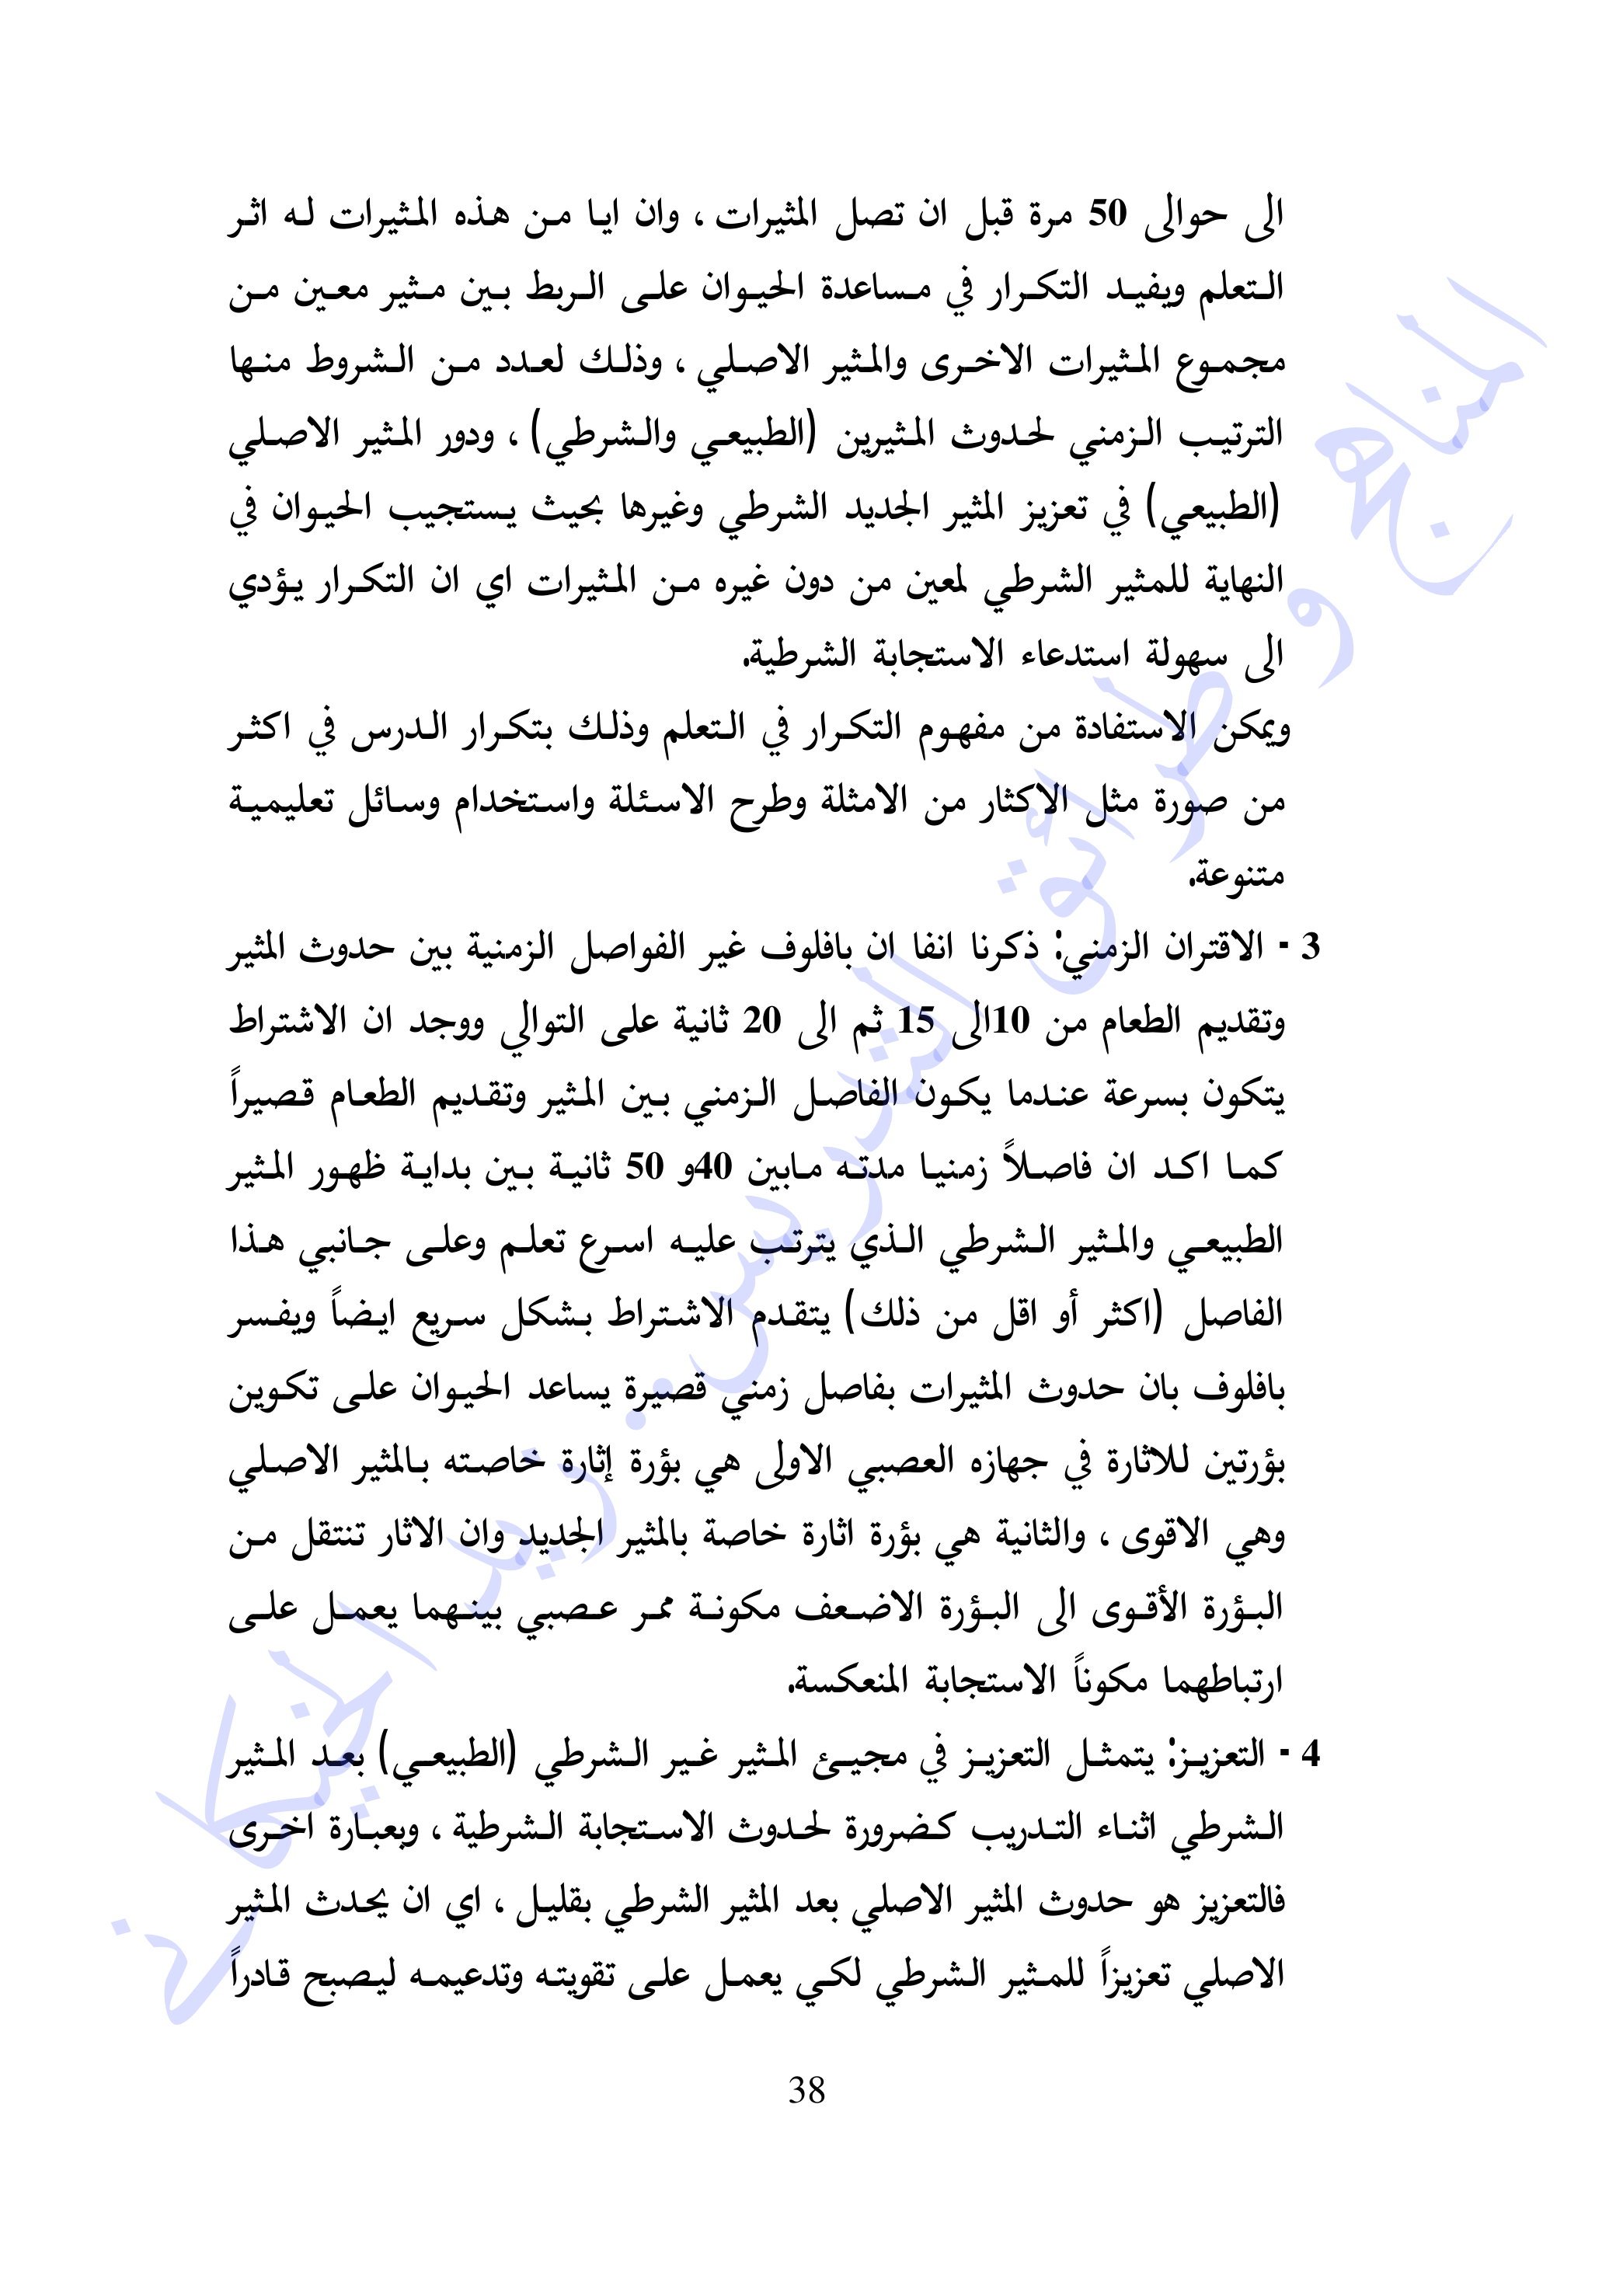 الى حوالى 50 مرة قبل ان تصل المثيرات ، وان ايا من هذه المثيرات له اثر
التعلم ويفيد التكرار في مساعدة الحيوان على الربط بين مثير معين من
مجموع المثيرات الاخرى والمثير الاصلي ، وذلك لعدد من الشروط منها
الترتيب الزمني لحدوث المثيرين (الطبيعي والشرطي) ، ودور المثير الاصلي
(الطبيعي) في تعزيز المثير الجديد الشرطي وغيرها بحيث يستجيب الحيوان في
النهاية للمثير الشرطي لمعين من دون غيره من المثيرات اي ان التكرار يؤدي
الى سهولة استدعاء الاستجابة الشرطية.
ويمكن الاستفادة من مفهوم التكرار في التعلم وذلك بتكرار الدرس في اكثر
من صورة مثل الاكثار من الامثلة وطرح الاسئلة واستخدام وسائل تعليمية
متنوعة.
3 - الاقتران الزمني: ذكرنا انفا ان بافلوف غير الفواصل الزمنية بين حدوث المثير
وتقديم الطعام من 10الى 15 ثم الى 20 ثانية على التوالي ووجد ان الاشتراط
يتكون بسرعة عندما يكون الفاصل الزمني بين المثير وتقديم الطعام قصيراً
كما اكد ان فاصلاً زمنيا مدته مابين 40و 50 ثانية بين بداية ظهور المثير
الطبيعي والمثير الشرطي الذي يترتب عليه اسرع تعلم وعلى جانبي هذا
الفاصل (اكثر أو اقل من ذلك) يتقدم الاشتراط بشكل سريع ايضاً ويفسر
بافلوف بان حدوث المثيرات بفاصل زمني قصيرة يساعد الحيوان على تكوين
بؤرتين للاثارة في جهازه العصبي الاولى هي بؤرة إثارة خاصته بالمثير الاصلي
وهي الاقوى ، والثانية هي بؤرة اثارة خاصة بالمثير الجديد وان الاثار تنتقل من
البؤرة الأقوى الى البؤرة الاضعف مكونة ممر عصبي بينهما يعمل على
ارتباطهما مكوناً الاستجابة المنعكسة.
4 - التعزيز: يتمثل التعزيز في مجيئ المثير غير الشرطي (الطبيعي) بعد المثير
الشرطي اثناء التدريب كضرورة لحدوث الاستجابة الشرطية ، وبعبارة اخرى
فالتعزيز هو حدوث المثير الاصلي بعد المثير الشرطي بقليل ، اي ان يحدث المثير
الاصلي تعزيزاً للمثير الشرطي لكي يعمل على تقويته وتدعيمه ليصبح قادراً
38
المناهج و طرائق التدريس . زيد الخيكاني